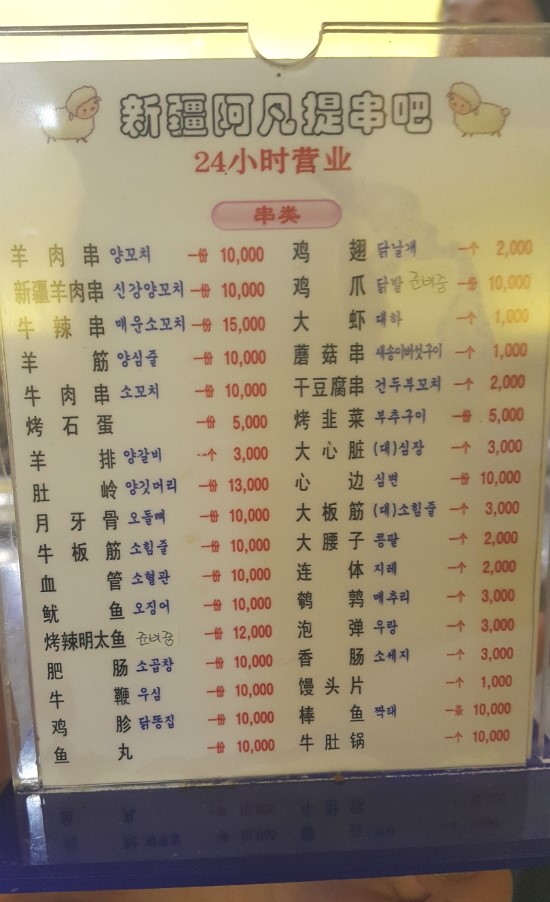 新疆阿凡提串吧
24小时营业
串类
羊肉串 양꼬치 一份 10,000
新疆羊肉串 신강양꼬치 一份 10,000
牛辣串 매운소꼬치 一份 15,000
羊筋 양심줄 一份 10,000
牛肉串 소꼬치 一份 10,000
烤石蛋 一份 5,000
羊排 양갈비 一个 3,000
肚岭 양깃머리 一份 13,000
月牙骨 오돌뼈 一份 10,000
牛板筋 소힘줄 一份 10,000
血管 소혈관 一份 10,000
鱿鱼 오징어 一份 10,000
烤辣明太鱼 준비중 一份 12,000
肥肠 소곱창 一份 10,000
牛鞭 우심 一份 10,000
鸡胗 닭똥집 一份 10,000
鱼丸 一份 10,000
鸡翅 닭날개 一个 2,000
鸡爪 닭발 준비중 一份 10,000
大虾 대하 一个 1,000
蘑菇串 새송이버섯구이 一个 1,000
干豆腐串 건두부꼬치 一个 2,000
烤韭菜 부추구이 一份 5,000
大心脏 (대)심장 一个 3,000
心边 심변 一份 10,000
大板筋 (대)소힘줄 一个 3,000
大腰子 콩팥 一个 2,000
连体 지레 一个 2,000
鹌鹑 메추리 一个 3,000
泡弹 우랑 一个 3,000
香肠 소세지 一个 3,000
馒头片 一个 1,000
棒鱼 짝태 一条 10,000
牛肚锅 一个 10,000